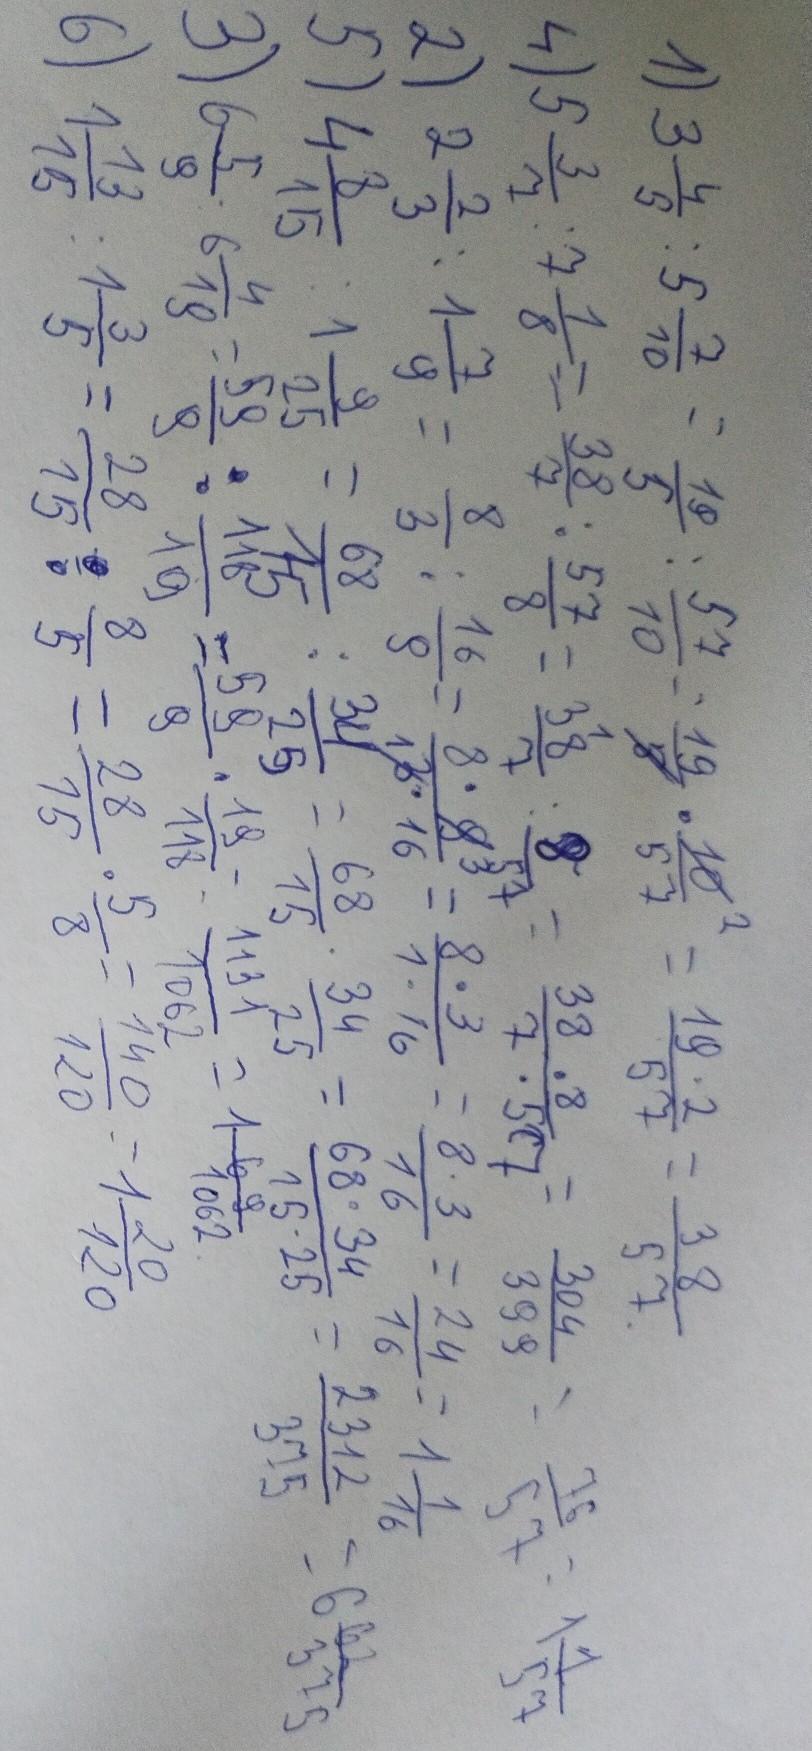 1) 3 4/5 : 5 7/10 = 19/5 : 57/10 = 19/5 · 10²/57 = 19·2/57 = 38/57.
4) 5 3/7 : 7 1/8 = 38/7 : 57/8 = 38/7 : 8/57 = 38·8/7·57 = 304/399 = 76/57 = 1 1/57
2) 2 2/3 : 1 7/9 = 8/3 : 16/9 = 8·9 3/1 3·16 = 8·3/1·16 = 8·3/16 = 24/16 = 1 1/16
5) 4 8/15 : 1 9/25 = 68/15 : 34/25 = 68/15 · 34/25 = 68·34/15·25 = 2312/375 = 6 62/375
3) 6 5/9 : 6 4/19 = 59/9 : 118/19 = 59/9 · 19/118 = 1131/1062 = 1 69/1062.
6) 1 13/15 : 1 3/5 = 28/15 : 8/5 = 28/15 · 5/8 = 140/120 = 1 20/120